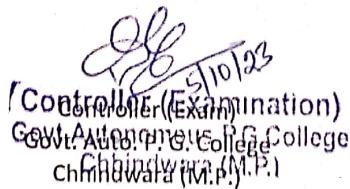 5/10/23
Controller (Examination)
Controller (Exam)
Govt. Autonomous P.G. College
Govt. Auto. P. G. College
Chhindwara (M.P.)
Chhindwara (M.P.)